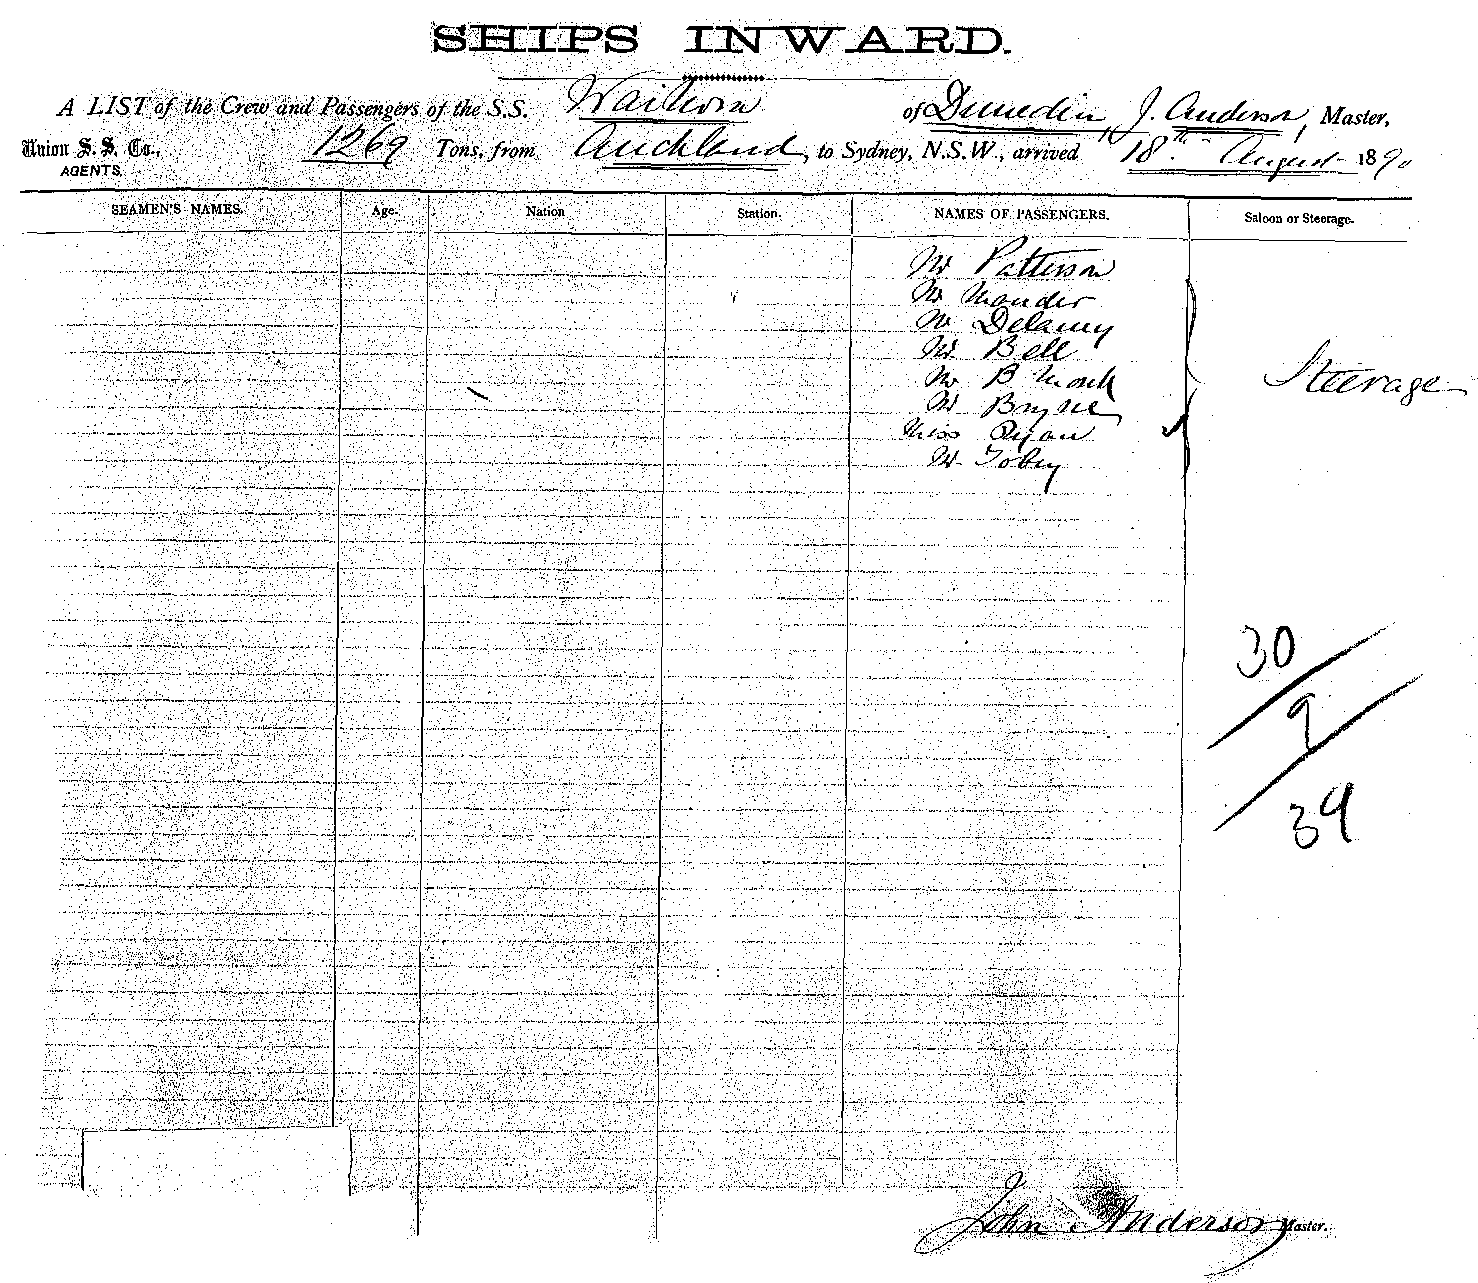 SHIPS INWARD.
A LIST of the Crew and Passengers of the S.S. of Dunedin, J. Anderson, Master,
Union S. S. Co., 1269 Tons, from Auckland, to Sydney, N.S.W., arrived 18th August 1890
AGENTS.
SEAMEN'S NAMES. Age. Nation Station. NAMES OF PASSENGERS. Saloon or Steerage.
Mr Patterson
Mr Mander
Mr Delaney
Mr Bell
Mr B Monk
Steerage
Mr
Miss Ryan
Mr Tobey
30
9
39
John Anderson Master.